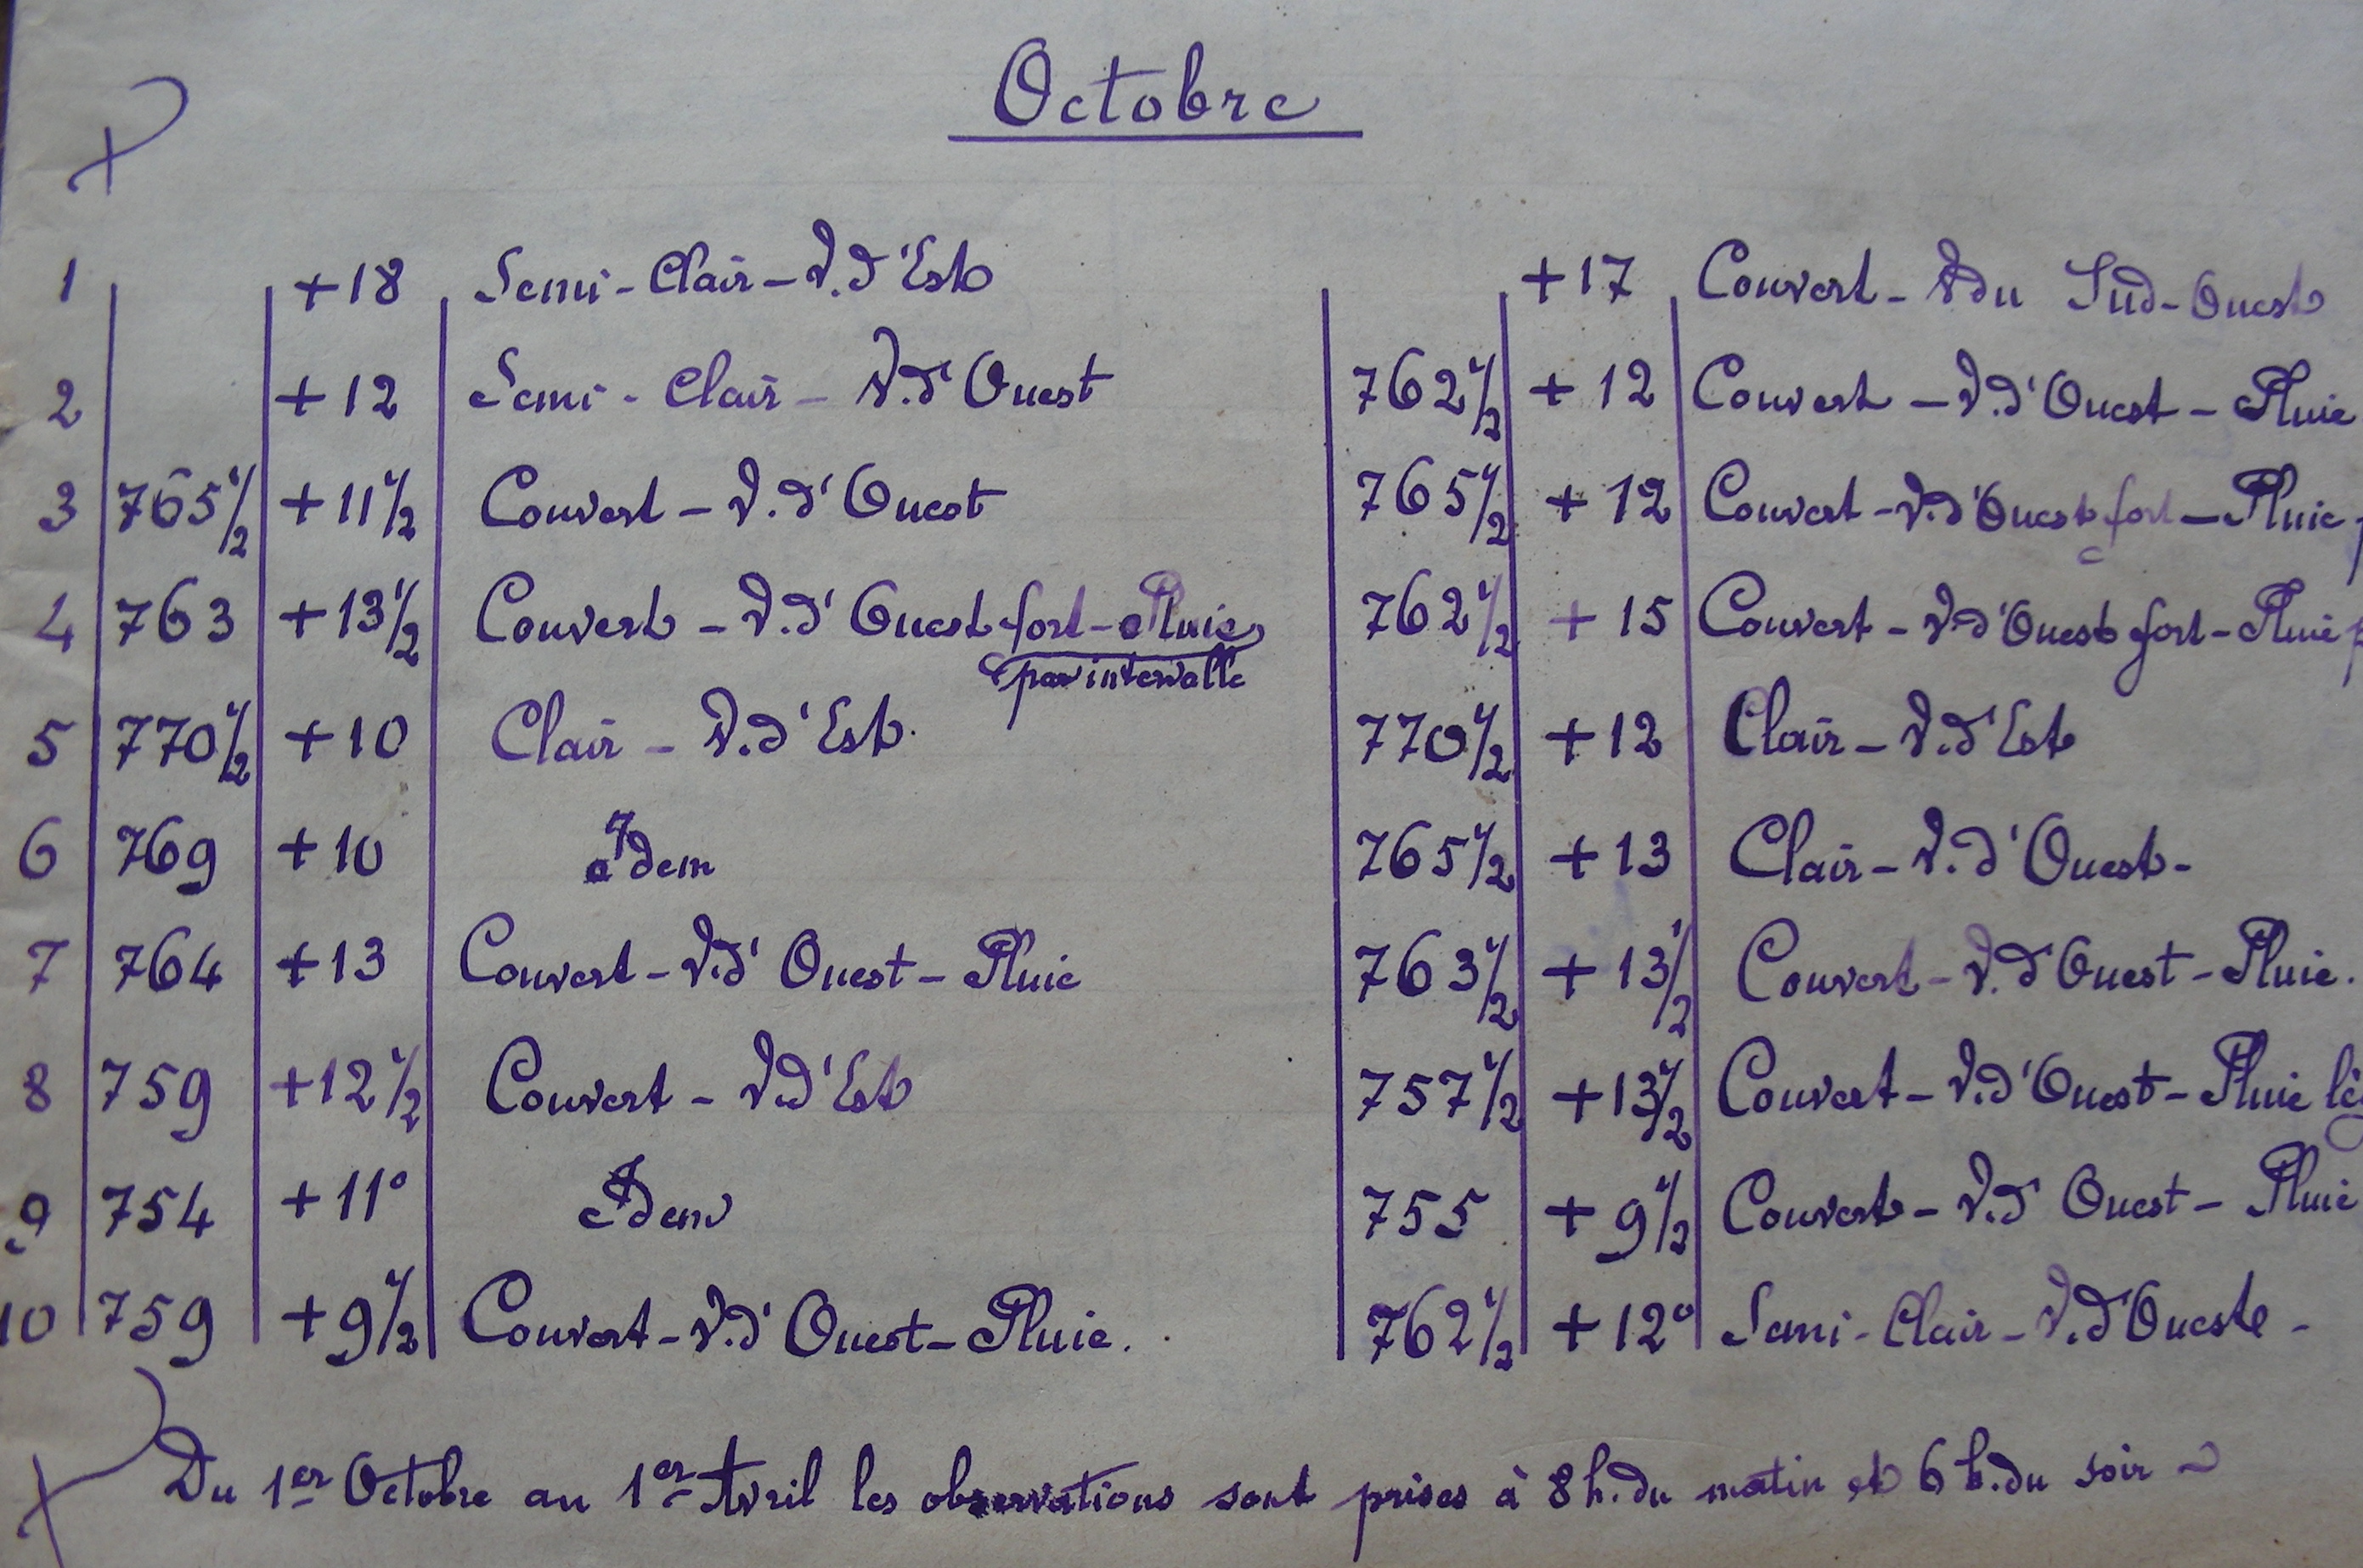 Octobre
1 +18 Semi-Clair-V.d'Est +17 Couvert-Vdu Sud-Ouest
2 +12 Semi-Clair-V.d'Ouest 762 1/2 +12 Couvert-V.d'Ouest-Pluie
3 765 1/2 +11 1/2 Couvert-V.d'Ouest 765 1/2 +12 Couvert-V.d'Ouest fort-Pluie
4 763 +13 1/2 Couvert-V.d'Ouest fort-Pluie 762 1/2 +15 Couvert-V.d'Ouest fort-Pluie
par intervalle
5 770 1/2 +10 Clair-V.d'Est. 770 1/2 +12 Clair-V.d'Est
6 769 +10 Idem 765 1/2 +13 Clair-V.d'Ouest-
7 764 +13 Couvert-V.d'Ouest-Pluie 763 1/2 +13 1/2 Couvert-V.d'Ouest-Pluie.
8 759 +12 1/2 Couvert-V.d'Est 757 1/2 +13 1/2 Couvert-V.d'Ouest-Pluie lég
9 754 +11° Idem 755 +9 1/2 Couvert-V.d'Ouest-Pluie
10 759 +9 1/2 Couvert-V.d'Ouest-Pluie. 762 1/2 +12° Semi-Clair-V.d'Oueste-
Du 1er Octobre au 1er Avril les observations sont prises à 8 h. du matin et 6 h. du soir